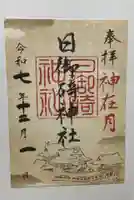 奉拝 神在月
日御碕神社
令和七年十二月一日